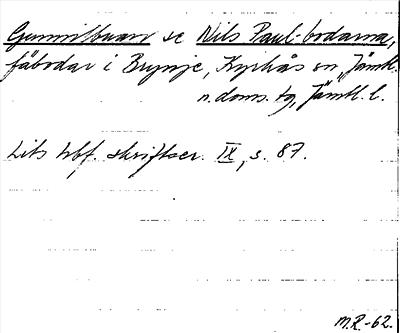 Gunnilbuan se Nils Paul-bodarna,
fäbodar i Brynje, Kyrkås sn, Jämtl.
n. doms. tg, Jämtl. l.
Lits hbf. skriftser. IX, s. 87.
M.R.-62.